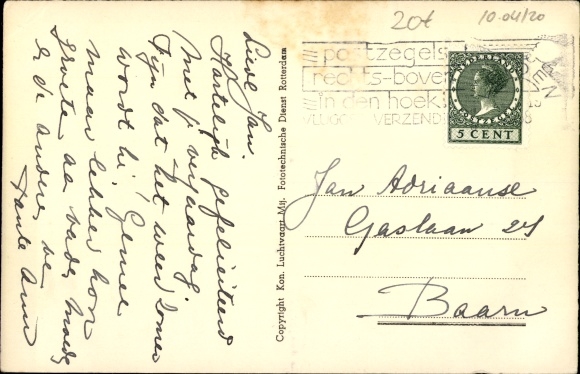 20ct 10-04/20
postzegels
rechts-boven
in den hoek
VLUGGE VERZENDING
NEDERLAND
5 CENT
Lieve Jan.
Hartelijk gefeliciteerd
met je verjaardag.
Fijn dat het weer zomer
wordt hè! Geniet
maar lekker hoor
Groeten aan vader, moeder
en de anderen, be
Tante Ann
Copyright Kon. Luchtvaart Mij. Fototechnische Dienst Rotterdam
Jan Adriaanse
Gaslaan 25
Baarn